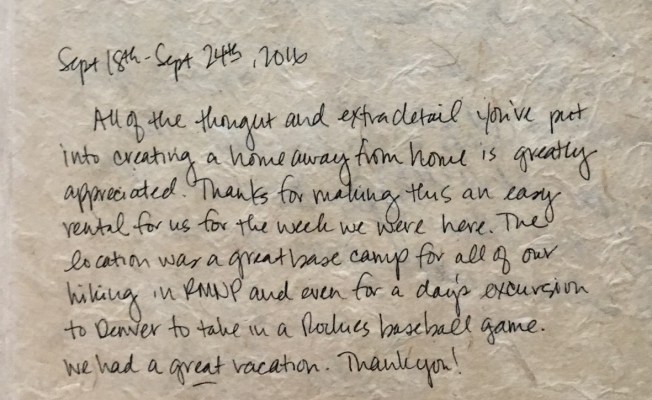 Sept 18th - Sept 24th, 2016
All of the thought and extra detail you've put
into creating a home away from home is greatly
appreciated. Thanks for making this an easy
rental for us for the week we were here. The
location was a great base camp for all of our
hiking in RMNP and even for a day's excursion
to Denver to take in a Rockies baseball game.
We had a great vacation. Thank you!